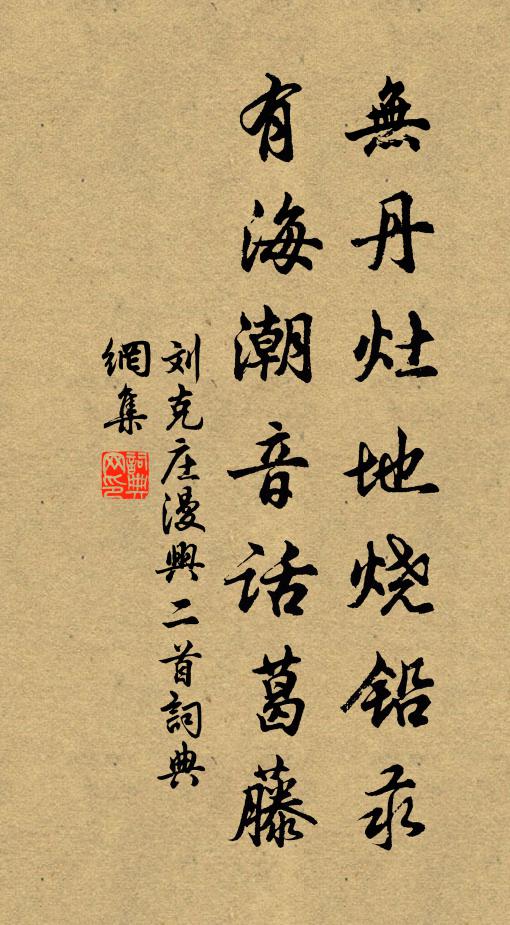 無丹灶地烧铅汞
有海潮音话葛藤
刘克庄漫興二首詞典
網集
詞典
网印